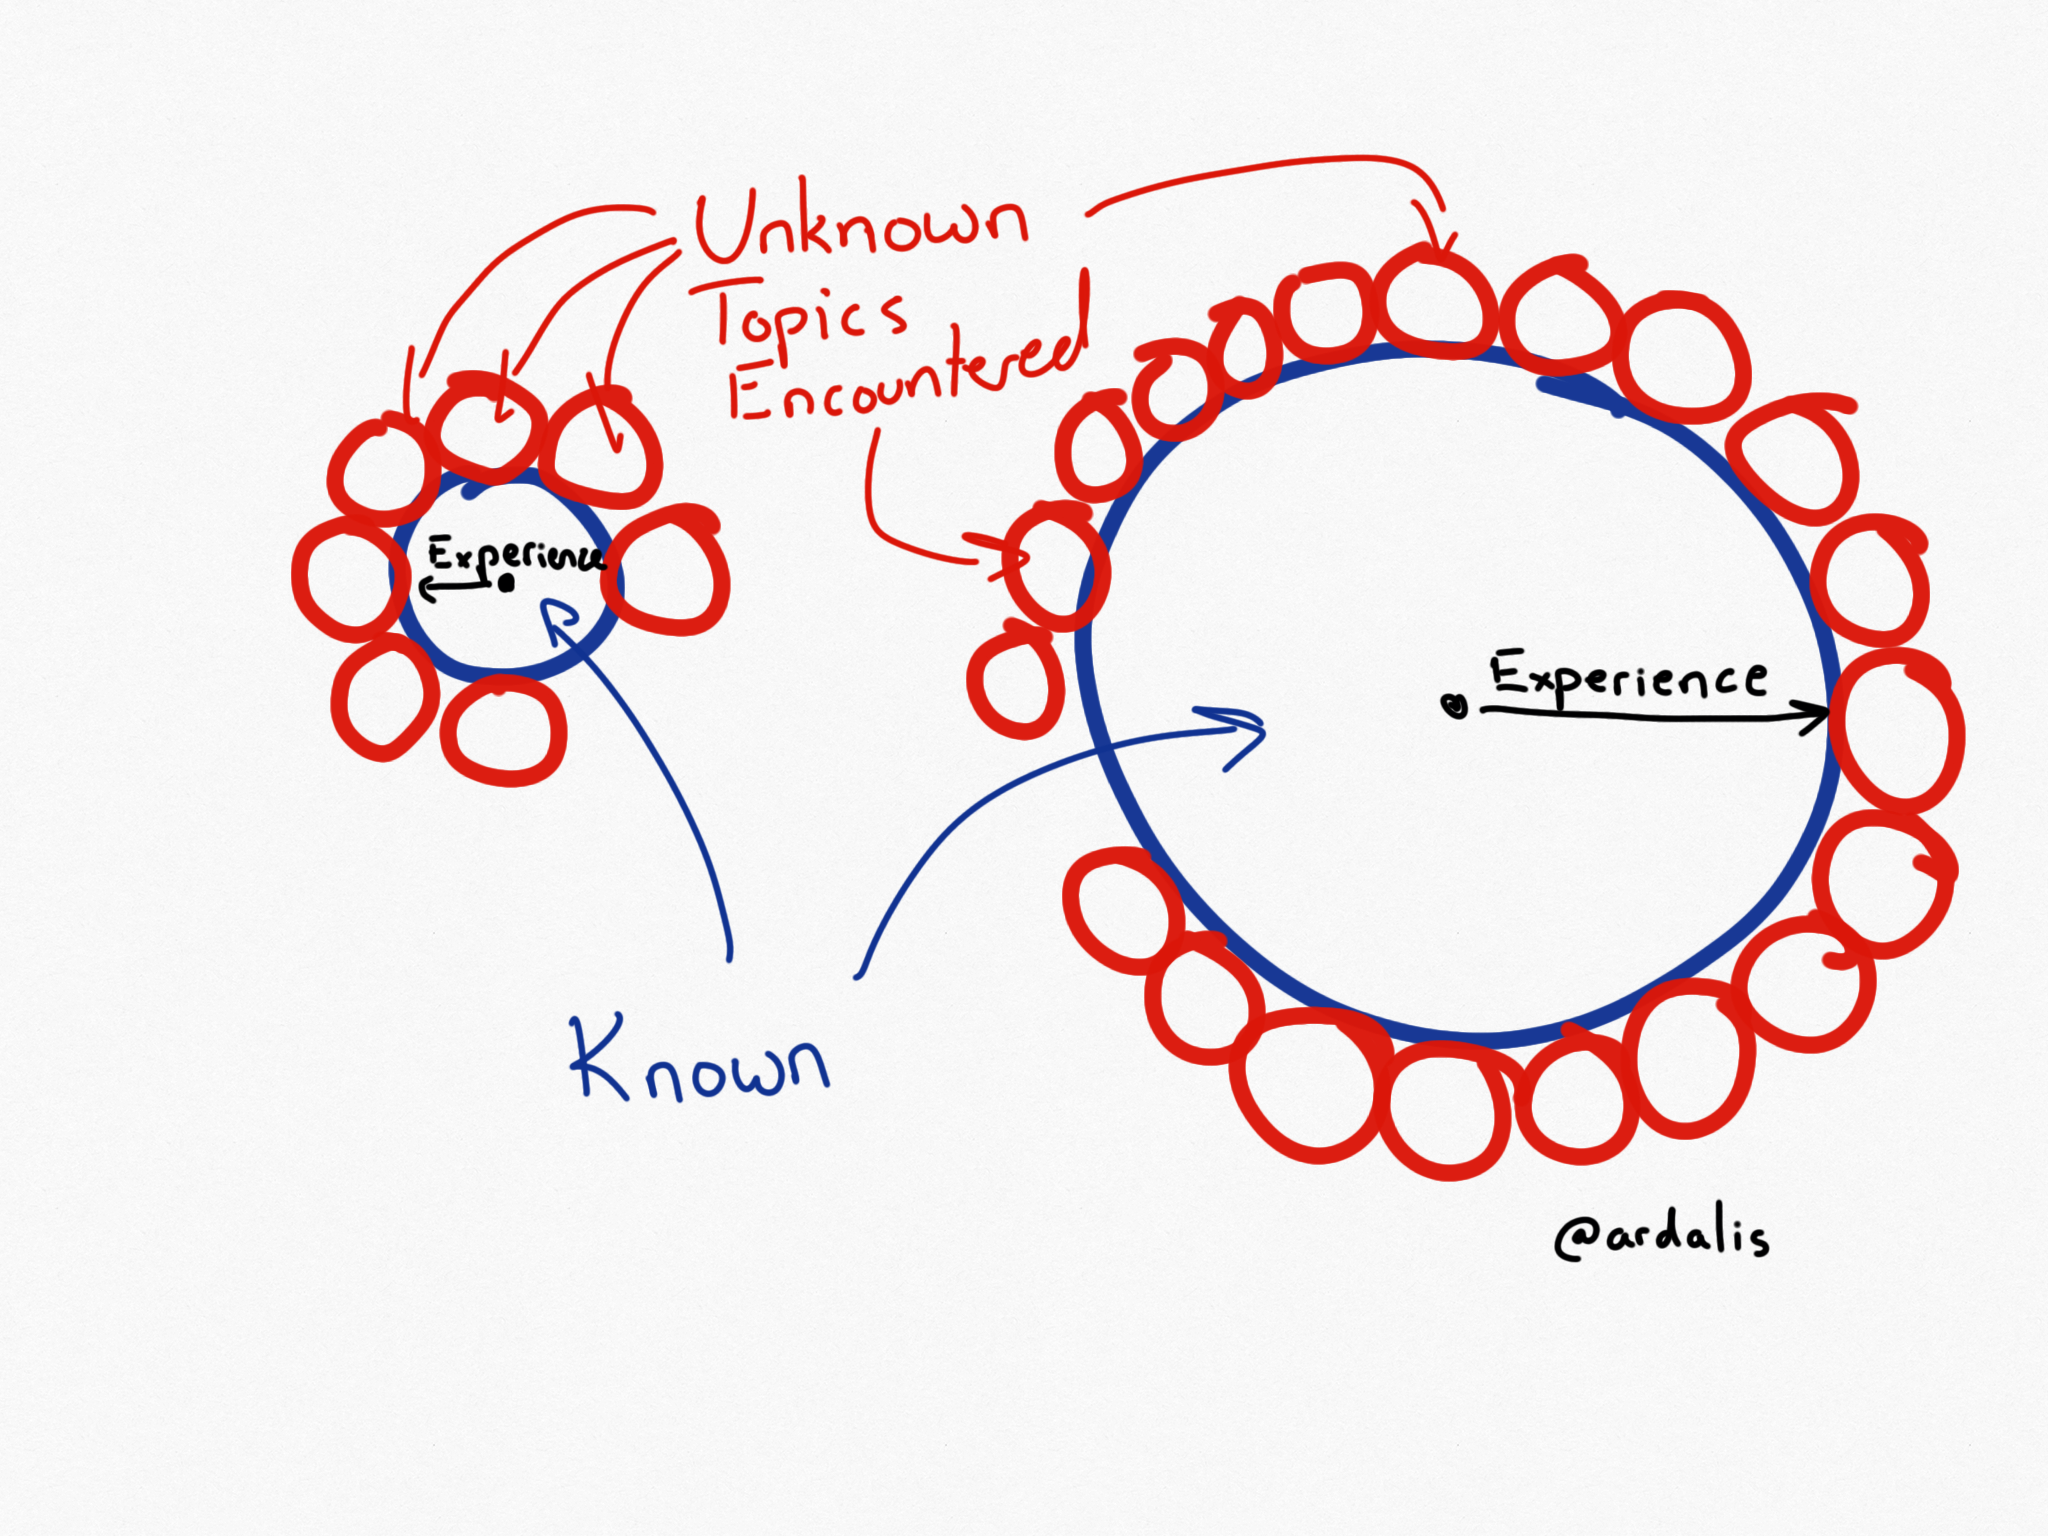 Unknown
Topics
Encountered
Experience
Experience
Known
@ardalis